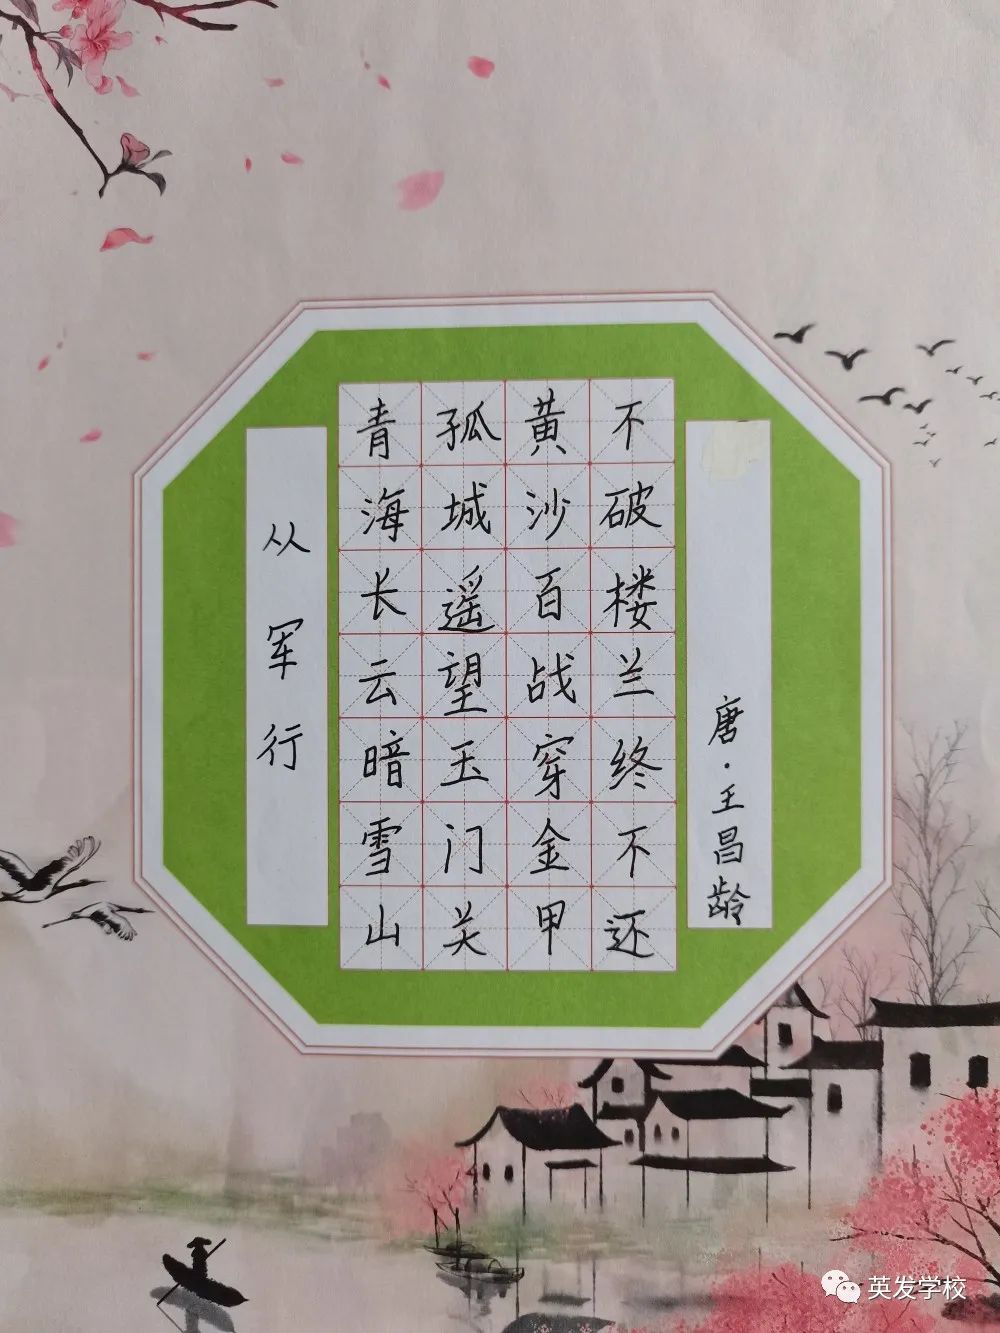 从军行
青海长云暗雪山
孤城遥望玉门关
黄沙百战穿金甲
不破楼兰终不还
唐·王昌龄
英发学校